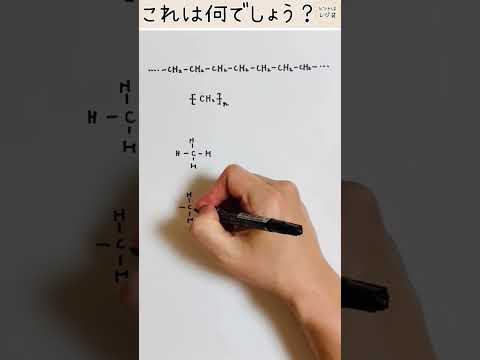 これは何でしょう？
ヒントは
レジ袋
····-CH₂-CH₂-CH₂-CH₂-CH₂-CH₂-CH₂-····
[CH₂]n
H
H-C-H
H
H
-C
H